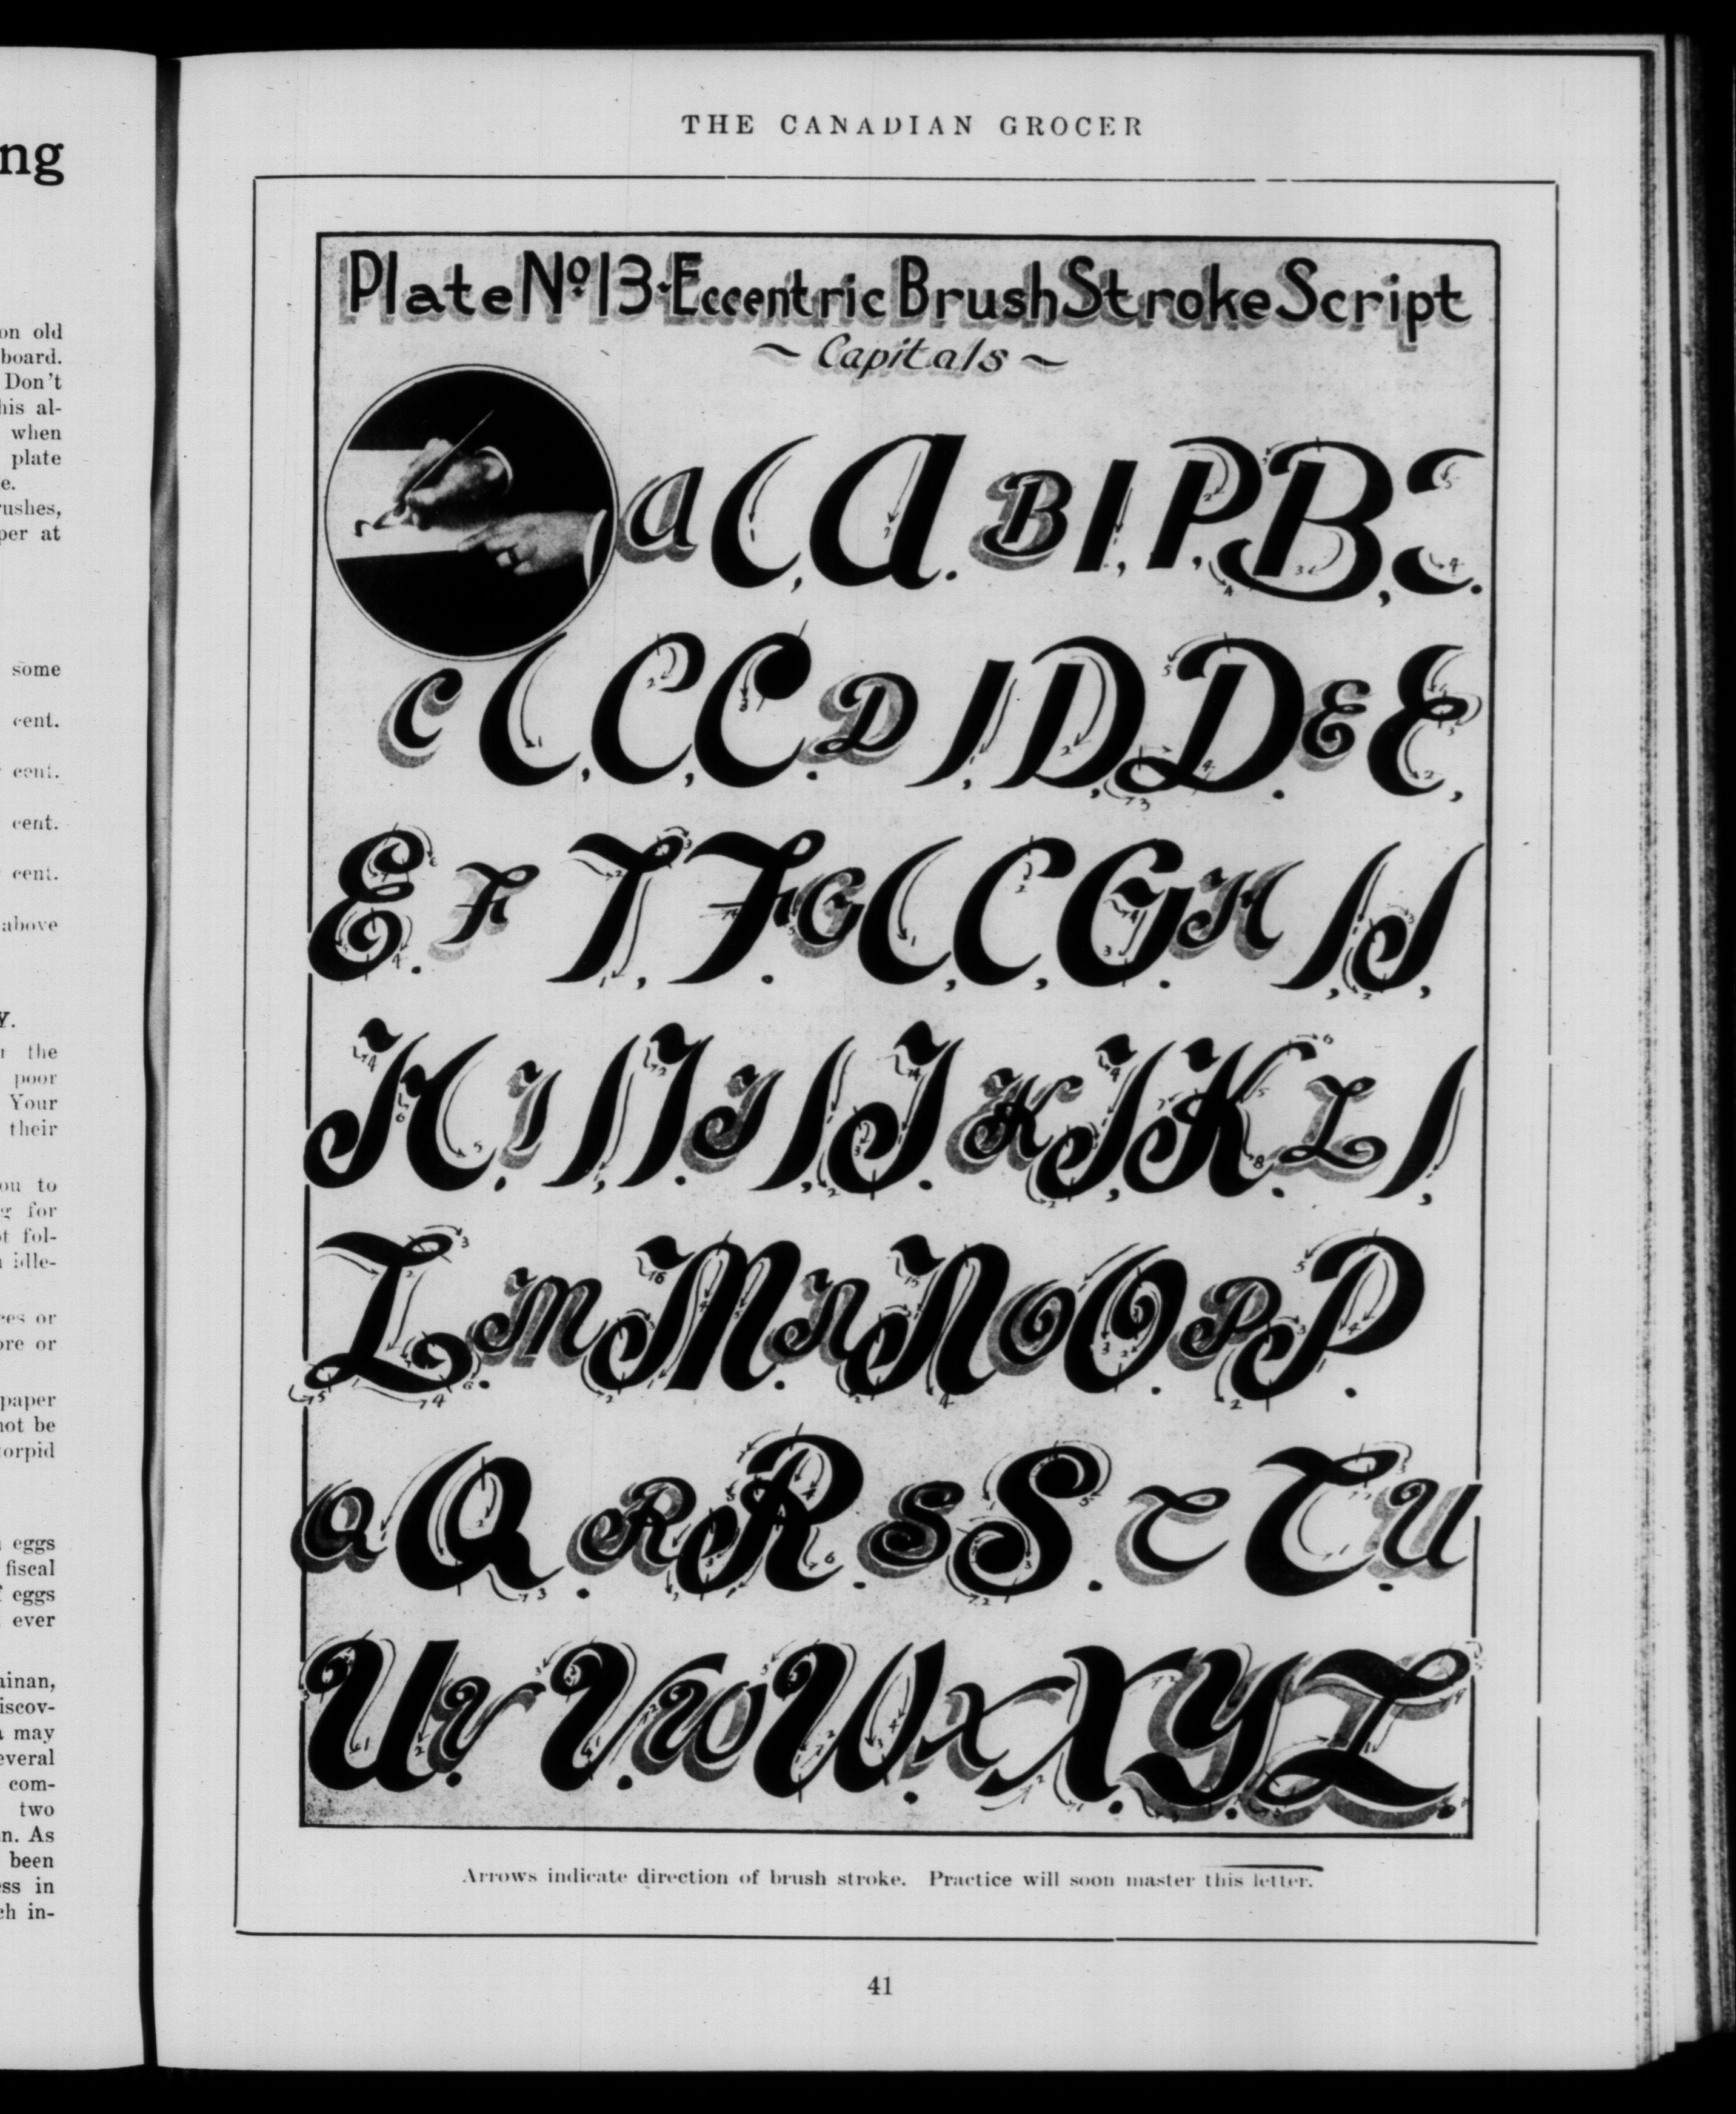 ng
on old
board.
Don't
his al-
when
plate
e.
rushes,
per at
some
cent.
cent.
cent.
cent.
above
Y.
the
poor
Your
their
ou to
g for
ot fol-
idle-
ces or
ore or
paper
not be
torpid
eggs
fiscal
f eggs
ever
ainan,
iscov-
may
everal
com-
two
n. As
been
ess in
ch in-
THE CANADIAN GROCER
Plate No 13-Eccentric Brush Stroke Script
~ Capitals ~
a ( a. B I, P, B, C.
C C, C, C. D I, D, D. E E,
E. F T, F. G C, C, G. H I, J,
H. I I, I. J I, J. K J, K. L I,
L. M M. N N. O O. P P.
Q Q. R R. S S. T T. U
U. V V. W W. X X. Y. Z.
Arrows indicate direction of brush stroke. Practice will soon master this letter.
41